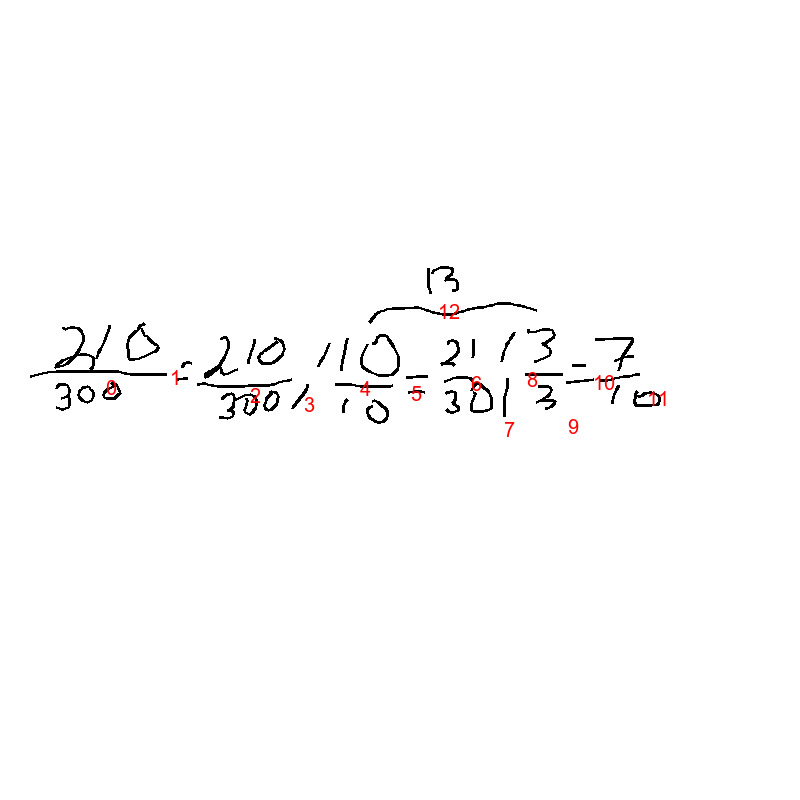 13
210/300 = 210/300 / 10/10 = 21/30 / 3/3 = 7/10
0 1 2 3 4 5 6 7 8 9 10 11 12